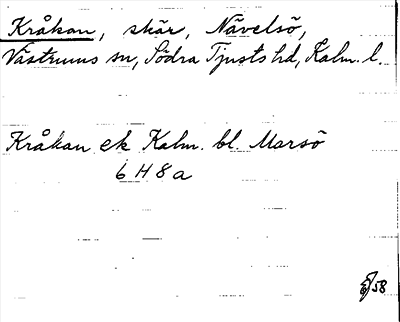 Kråkan, skär, Nävelsö,
Västrums sn, Södra Tjusts hd, Kalm. l.
Kråkan ek Kalm. bl. Marsö
6 H 8 a
58